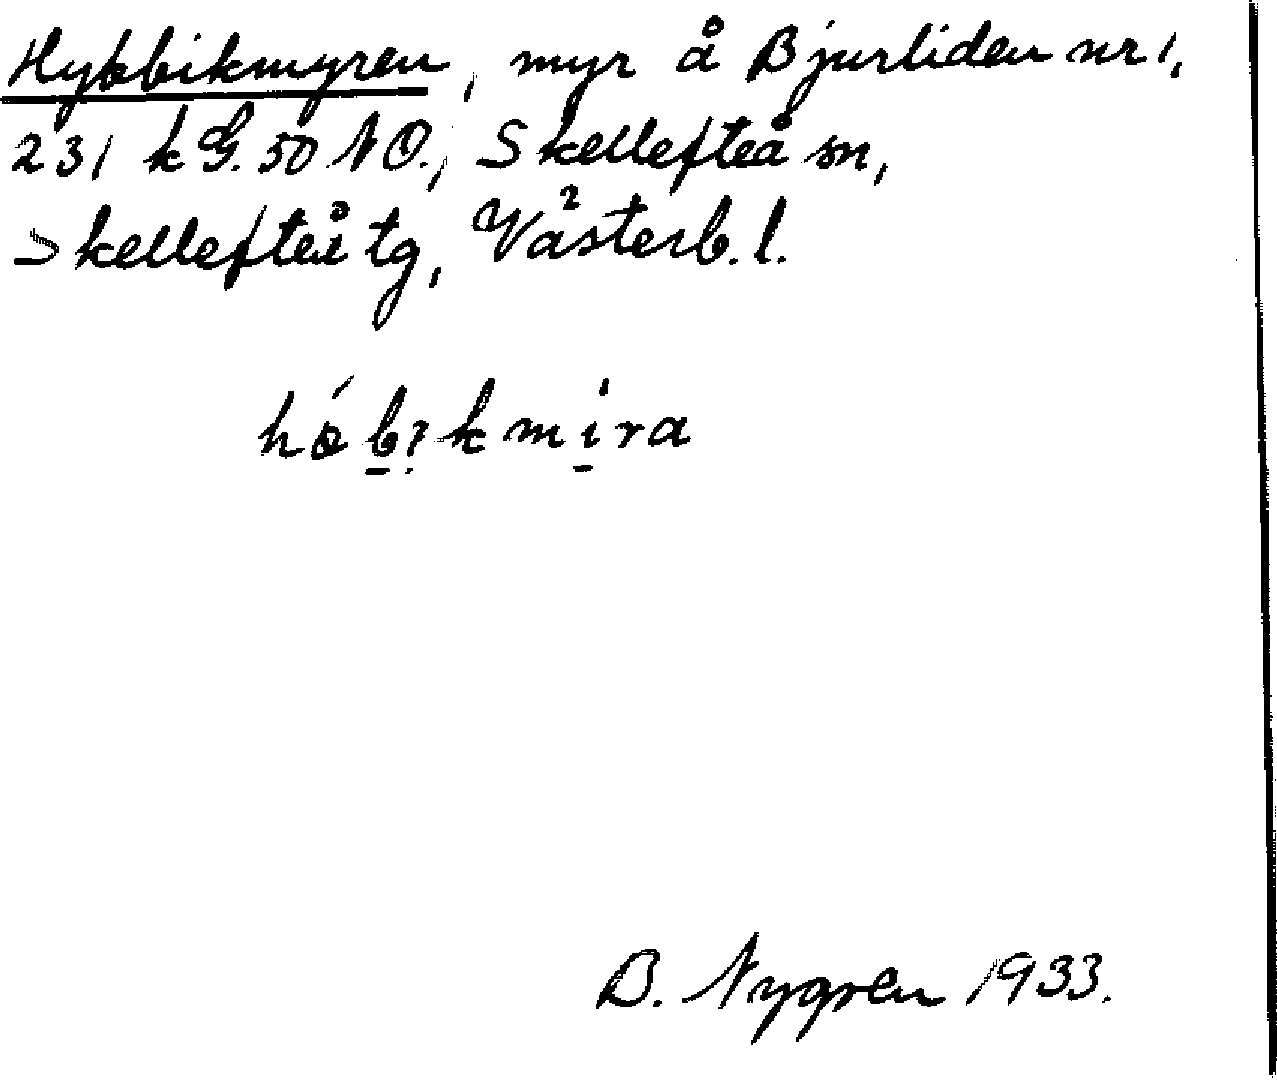 Hybbikmyren, myr å Bjurliden nr 1,
231 kG. 50 NO., Skellefteå sn,
Skellefteå tg, Västerb. l.
hǿbıkmira
B. Nygren 1933.